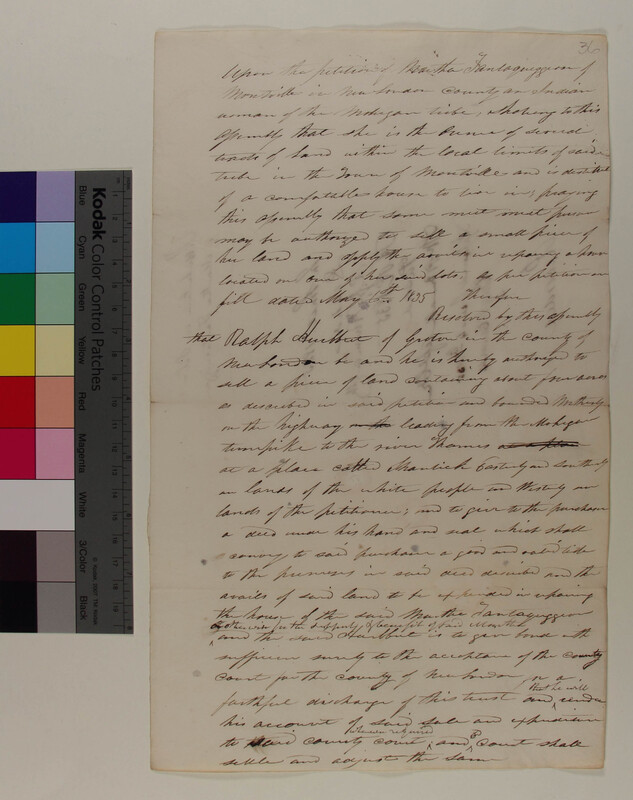 36
Upon the petition of Martha Tantaquggeon of
Montville in New London County an Indian
woman of the Mohegan tribe, shewing to this
Assembly that she is the owner of several
tracts of land within the local limits of said
tribe in the Town of Montville and is destitute
of a comfortable house to live in; praying
this Assembly that some meet person
may be authorized to sell a small piece of
her land and apply the avails in repairing a house
located on one of her said lots. As per petition on
file dated May 1835 Therefore
Resolved by this assembly
that Ralph Hurlbut of Groton in the county of
New London be and he is hereby authorized to
sell a piece of land containing about four acres
as described in said petition and bounded Northerly
on the highway leading from the Mohegan
turnpike to the river Thames
at a place called Shantick Easterly and Southerly
on lands of the white people and Westerly on
lands of the petitioner; and to give to the purchaser
a deed under his hand and seal which shall
convey to said purchaser a good and valid title
to the premises in said deed described and the
avails of said land to be expended in repairing
the house of the said Martha Tantaquggeon
or otherwise for the support & benefit of said Martha
and the said Hurlbut is to give bond with
sufficient surety to the acceptance of the county
court for the county of New London for a
faithful discharge of this trust and that he will render
his account of said sale and expenditure
to said county court when required and sd Court shall
settle and adjust the same
Kodak
Color Control Patches
Blue
Cyan
Green
Yellow
Red
Magenta
White
3/Color
Black